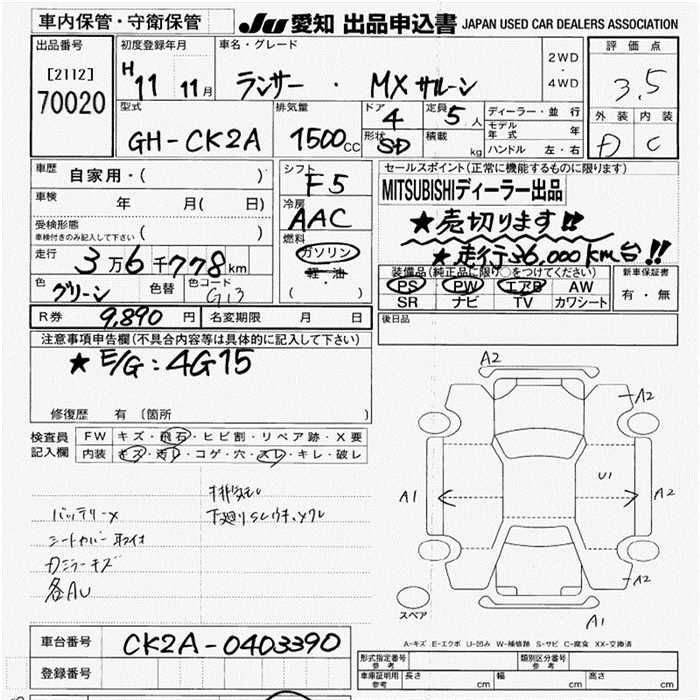 車内保管・守衛保管
JU 愛知 出品申込書 JAPAN USED CAR DEALERS ASSOCIATION
出品番号
[2112]
70020
初度登録年月
H 11 11月
車名・グレード
ランサー ・ MX サルーン
2WD
・
4WD
評価点
3.5
外装 内装
D C
型式
GH-CK2A
排気量
1500cc
ドア 4
定員 5人
形状 SD
積載 kg
ディーラー・並行
モデル年式 年
ハンドル 左・右
車歴 自家用・( )
車検 年 月( 日)
受検形態
車検付きのみ記入して下さい ( )
走行 3万6千778km
色 グリーン 色替 色コード G13
シフト F5
冷房 AAC
燃料
ガソリン
軽・油
( )
セールスポイント(正常に機能するものに限ります)
MITSUBISHIディーラー出品
★売切ります!!
★走行36,000km台!!
装備品(純正品に限り○をつけてください)
PS PW エアB AW
SR ナビ TV カワシート
新車保証書
有・無
R券 9,890 円 名変期限 月 日
後日品
注意事項申告欄(不具合内容等は具体的に記入して下さい)
★E/G:4G15
修復歴 有 〔箇所 〕
検査員記入欄
FW キズ・飛石・ヒビ割・リペア跡・X要
内装 キズ・汚レ・コゲ・穴・スレ・キレ・破レ
バッテリーX
シートカバー取付
Dミラーキズ
各AU
A2
A2
A1
U1
A2
A2
A1
スペア
A-キズ E-エクボ U-凹み W-補修跡 S-サビ C-腐食 XX-交換済
車台番号 CK2A-0403390
登録番号
形式指定番号 参考
類別区分番号 参考
車庫証明用 参考 長さ cm 幅 cm 高さ cm